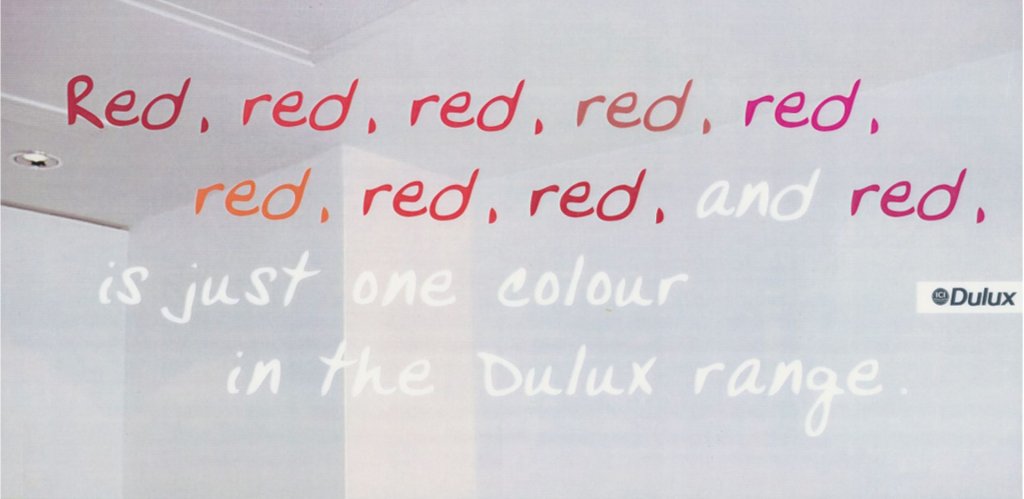 Red, red, red, red, red,
red, red, red, and red,
is just one colour
in the Dulux range.
ICI Dulux